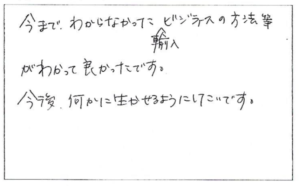 今まで、わからなかった輸入ビジネスの方法等
がわかって良かったです。
今後、何かに生かせるようにしたいです。